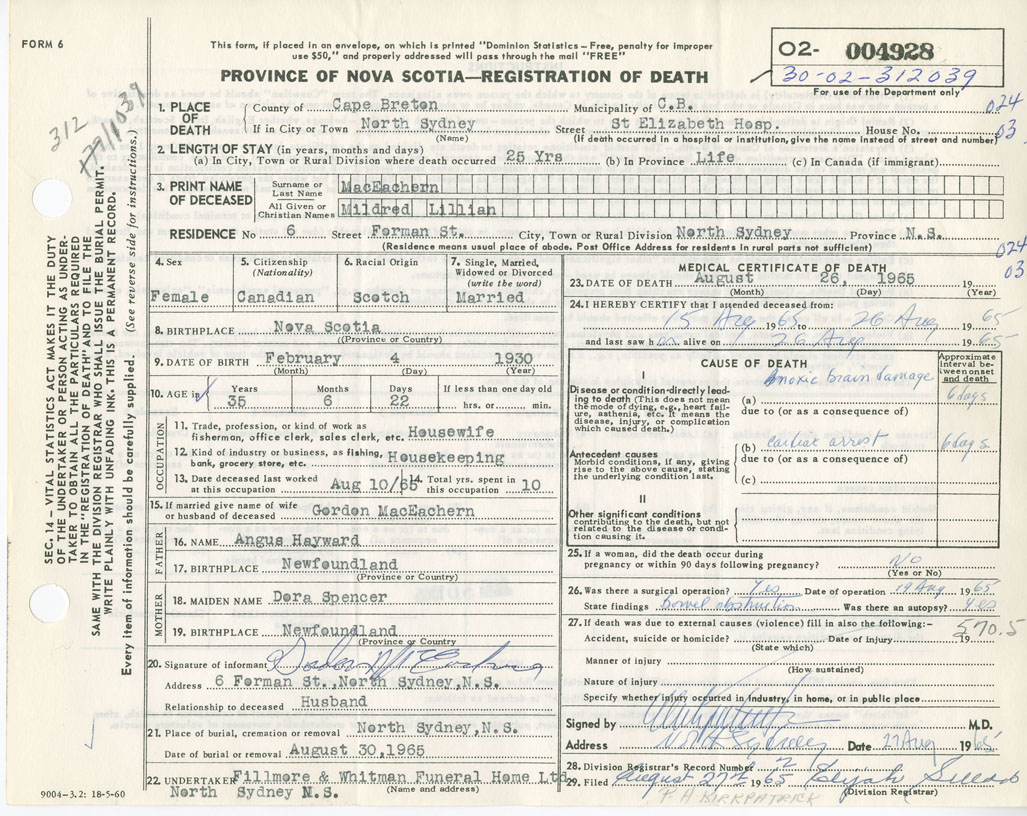 FORM 6
This form, if placed in an envelope, on which is printed "Dominion Statistics—Free, penalty for improper
use $50," and properly addressed will pass through the mail "FREE"
PROVINCE OF NOVA SCOTIA—REGISTRATION OF DEATH
02- 004928
30-02-312039
For use of the Department only
312
024
03
1. PLACE OF DEATH
County of Cape Breton Municipality of C.B.
If in City or Town North Sydney Street St Elizabeth Hosp. House No.
(Name) (If death occurred in a hospital or institution, give the name instead of street and number)
2. LENGTH OF STAY (in years, months and days)
(a) In City, Town or Rural Division where death occurred 25 Yrs (b) In Province Life (c) In Canada (if immigrant)
3. PRINT NAME OF DECEASED
Surname or Last Name MacEachern
All Given or Christian Names Mildred Lillian
RESIDENCE No 6 Street Forman St. City, Town or Rural Division North Sydney Province N.S.
(Residence means usual place of abode. Post Office Address for residents in rural parts not sufficient)
024
03
4. Sex
Female
5. Citizenship
(Nationality)
Canadian
6. Racial Origin
Scotch
7. Single, Married, Widowed or Divorced
(write the word)
Married
8. BIRTHPLACE Nova Scotia
(Province or Country)
9. DATE OF BIRTH February 4 1930
(Month) (Day) (Year)
10. AGE in Years Months Days If less than one day old
35 6 22 hrs. or min.
OCCUPATION
11. Trade, profession, or kind of work as
fisherman, office clerk, sales clerk, etc. Housewife
12. Kind of industry or business, as fishing,
bank, grocery store, etc. Housekeeping
13. Date deceased last worked at this occupation Aug 10/65
14. Total yrs. spent in this occupation 10
15. If married give name of wife
or husband of deceased Gordon MacEachern
FATHER
16. NAME Angus Hayward
17. BIRTHPLACE Newfoundland
(Province or Country)
MOTHER
18. MAIDEN NAME Dora Spencer
19. BIRTHPLACE Newfoundland
(Province or Country
20. Signature of informant
Address 6 Forman St.,North Sydney,N.S.
Relationship to deceased Husband
21. Place of burial, cremation or removal North Sydney,N.S.
Date of burial or removal August 30,1965
22. UNDERTAKER Fillmore & Whitman Funeral Home Ltd
North Sydney N.S. (Name and address)
9004-3.2: 18-5-60
MEDICAL CERTIFICATE OF DEATH
23. DATE OF DEATH August 26, 1965 19
(Month) (Day) (Year)
24. I HEREBY CERTIFY that I attended deceased from:
15 Aug 1965 to 26 Aug 1965
and last saw h er alive on 26 Aug 1965
CAUSE OF DEATH
Approximate interval between onset and death
I
Disease or condition directly leading to death (This does not mean the mode of dying, e.g., heart failure, asthenia, etc. It means the disease, injury, or complication which caused death.)
(a) Anoxic brain damage 6 days
due to (or as a consequence of)
Antecedent causes
Morbid conditions, if any, giving rise to the above cause, stating the underlying condition last.
(b) cardiac arrest 6 days
due to (or as a consequence of)
(c)
II
Other significant conditions
contributing to the death, but not related to the disease or condition causing it.
25. If a woman, did the death occur during
pregnancy or within 90 days following pregnancy? No
(Yes or No)
26. Was there a surgical operation? Yes Date of operation 19 Aug 1965
State findings bowel obstruction Was there an autopsy? yes
27. If death was due to external causes (violence) fill in also the following:—
570.5
Accident, suicide or homicide? Date of injury 19
(State which)
Manner of injury
(How sustained)
Nature of injury
Specify whether injury occurred in industry, in home, or in public place
Signed by M.D.
Address North Sydney Date 27 Aug 1965
28. Division Registrar's Record Number 2
29. Filed August 27th 1965 Elijah
(Division Registrar)
R H KIRKPATRICK
SEC. 14 – VITAL STATISTICS ACT MAKES IT THE DUTY
OF THE UNDERTAKER OR PERSON ACTING AS UNDER-
TAKER TO OBTAIN ALL THE PARTICULARS REQUIRED
IN THE "REGISTRATION OF DEATH" AND TO FILE THE
SAME WITH THE DIVISION REGISTRAR WHO SHALL ISSUE THE BURIAL PERMIT.
WRITE PLAINLY WITH UNFADING INK. THIS IS A PERMANENT RECORD.
Every item of information should be carefully supplied. (See reverse side for instructions.)